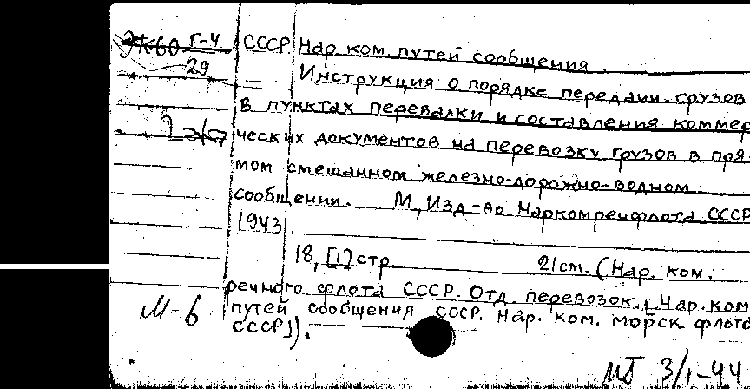 Г-4
29
СССР. Нар. ком. путей сообщения.
Инструкция о порядке передачи грузов
в пунктах перевалки и составления коммер
ческих документов на перевозку грузов в пря
мом смешанном железно-дорожно-водном
сообщении. М., Изд-во Наркомречфлота СССР
1943
18, [1] стр. 21 см. (Нар. ком.
речного флота СССР. Отд. перевозок. [Нар. ком
путей сообщения СССР. Нар. ком. морск флота
СССР]).
М-6
3/I-44